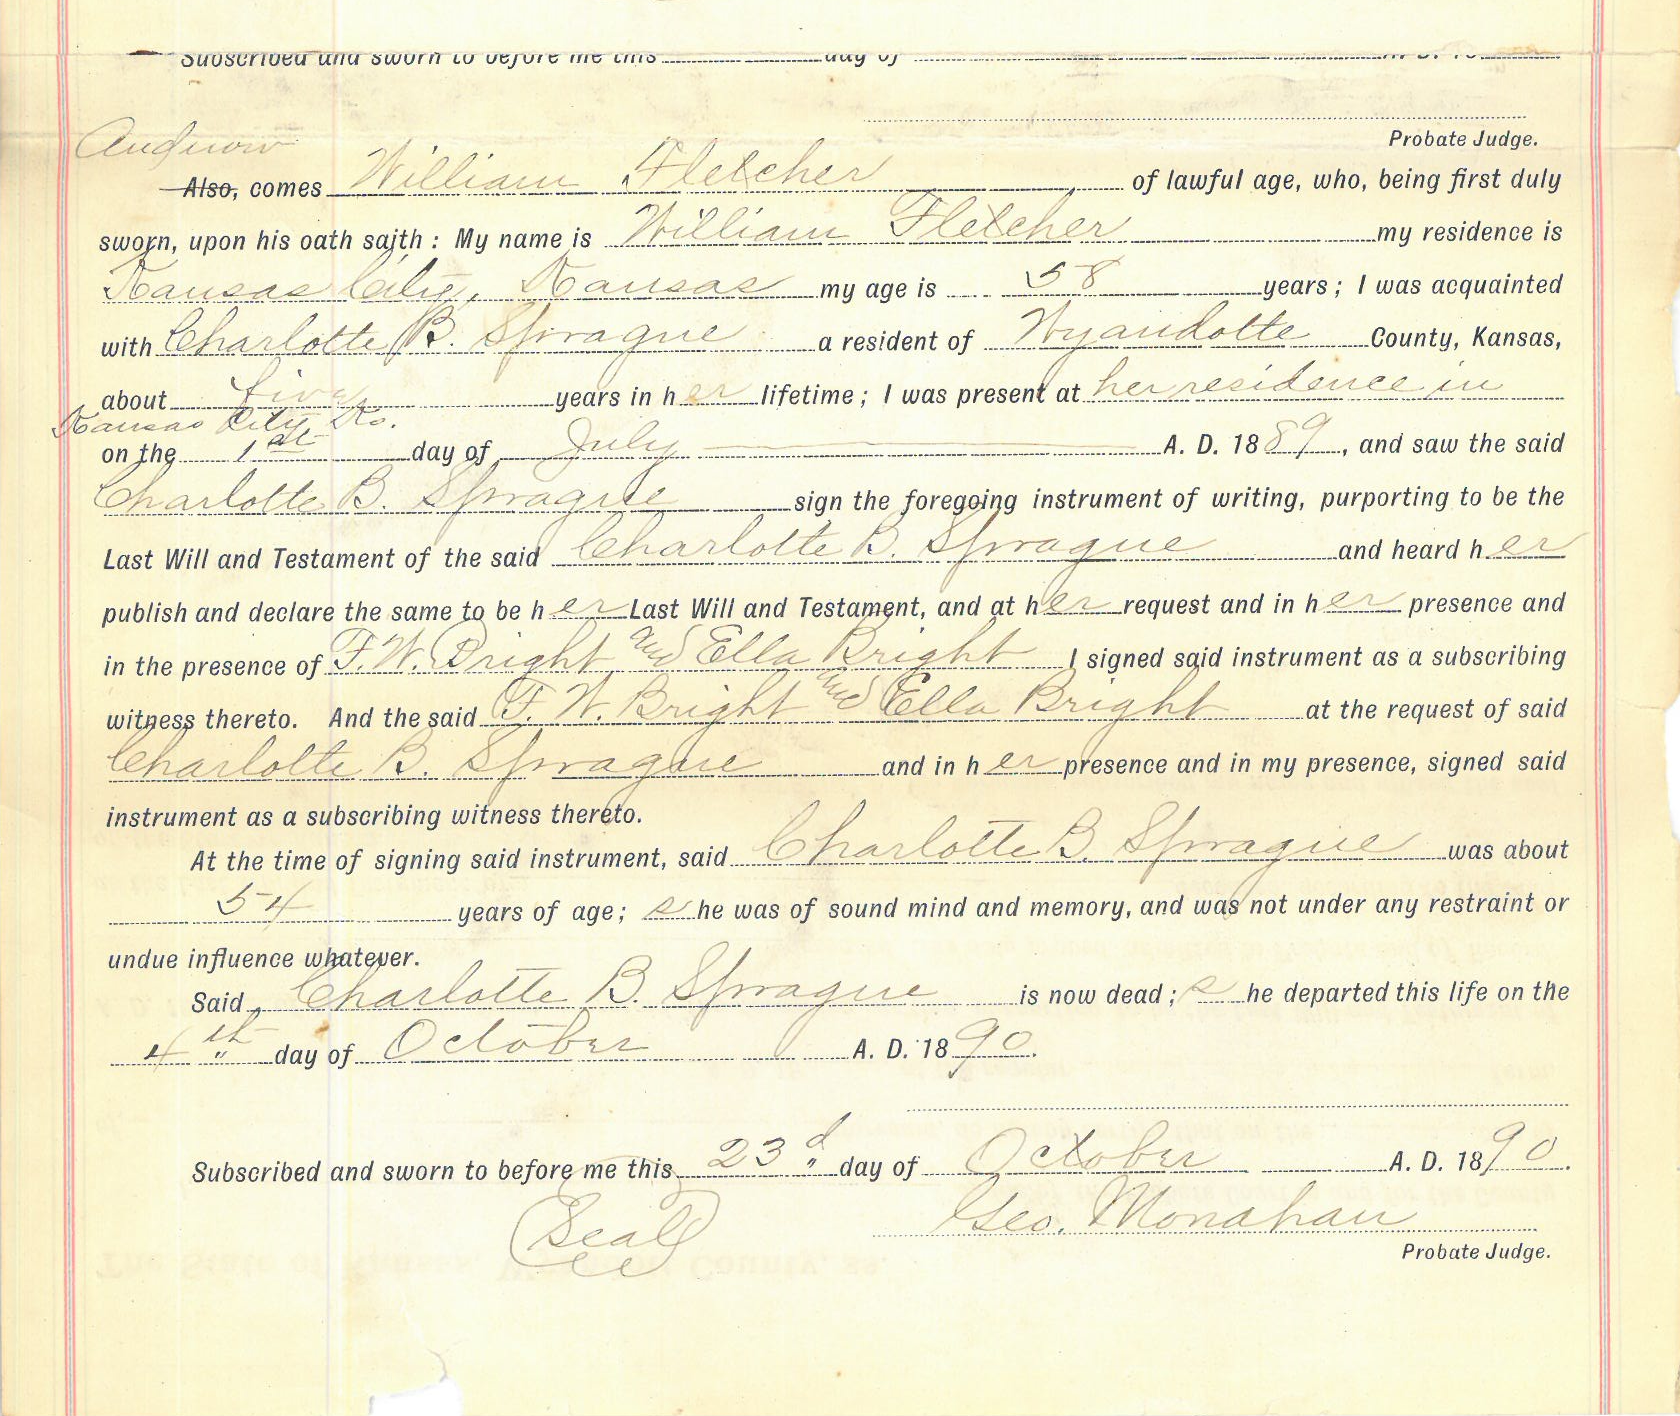 Subscribed and sworn to before me this day of A. D. 18
Probate Judge.
And now
Also, comes William Fletcher of lawful age, who, being first duly
sworn, upon his oath saith: My name is William Fletcher my residence is
Kansas City, Kansas my age is 58 years; I was acquainted
with Charlotte B. Sprague a resident of Wyandotte County, Kansas,
about five years in her lifetime; I was present at her residence in
Kansas City Ks.
on the 1st day of July A. D. 1889, and saw the said
Charlotte B. Sprague sign the foregoing instrument of writing, purporting to be the
Last Will and Testament of the said Charlotte B. Sprague and heard her
publish and declare the same to be her Last Will and Testament, and at her request and in her presence and
in the presence of F. W. Bright and Ella Bright I signed said instrument as a subscribing
witness thereto. And the said F. W. Bright and Ella Bright at the request of said
Charlotte B. Sprague and in her presence and in my presence, signed said
instrument as a subscribing witness thereto.
At the time of signing said instrument, said Charlotte B. Sprague was about
54 years of age; she was of sound mind and memory, and was not under any restraint or
undue influence whatever.
Said Charlotte B. Sprague is now dead; she departed this life on the
4th day of October A. D. 1890.
Subscribed and sworn to before me this 23d day of October A. D. 1890.
Seal
Geo. Monahan
Probate Judge.